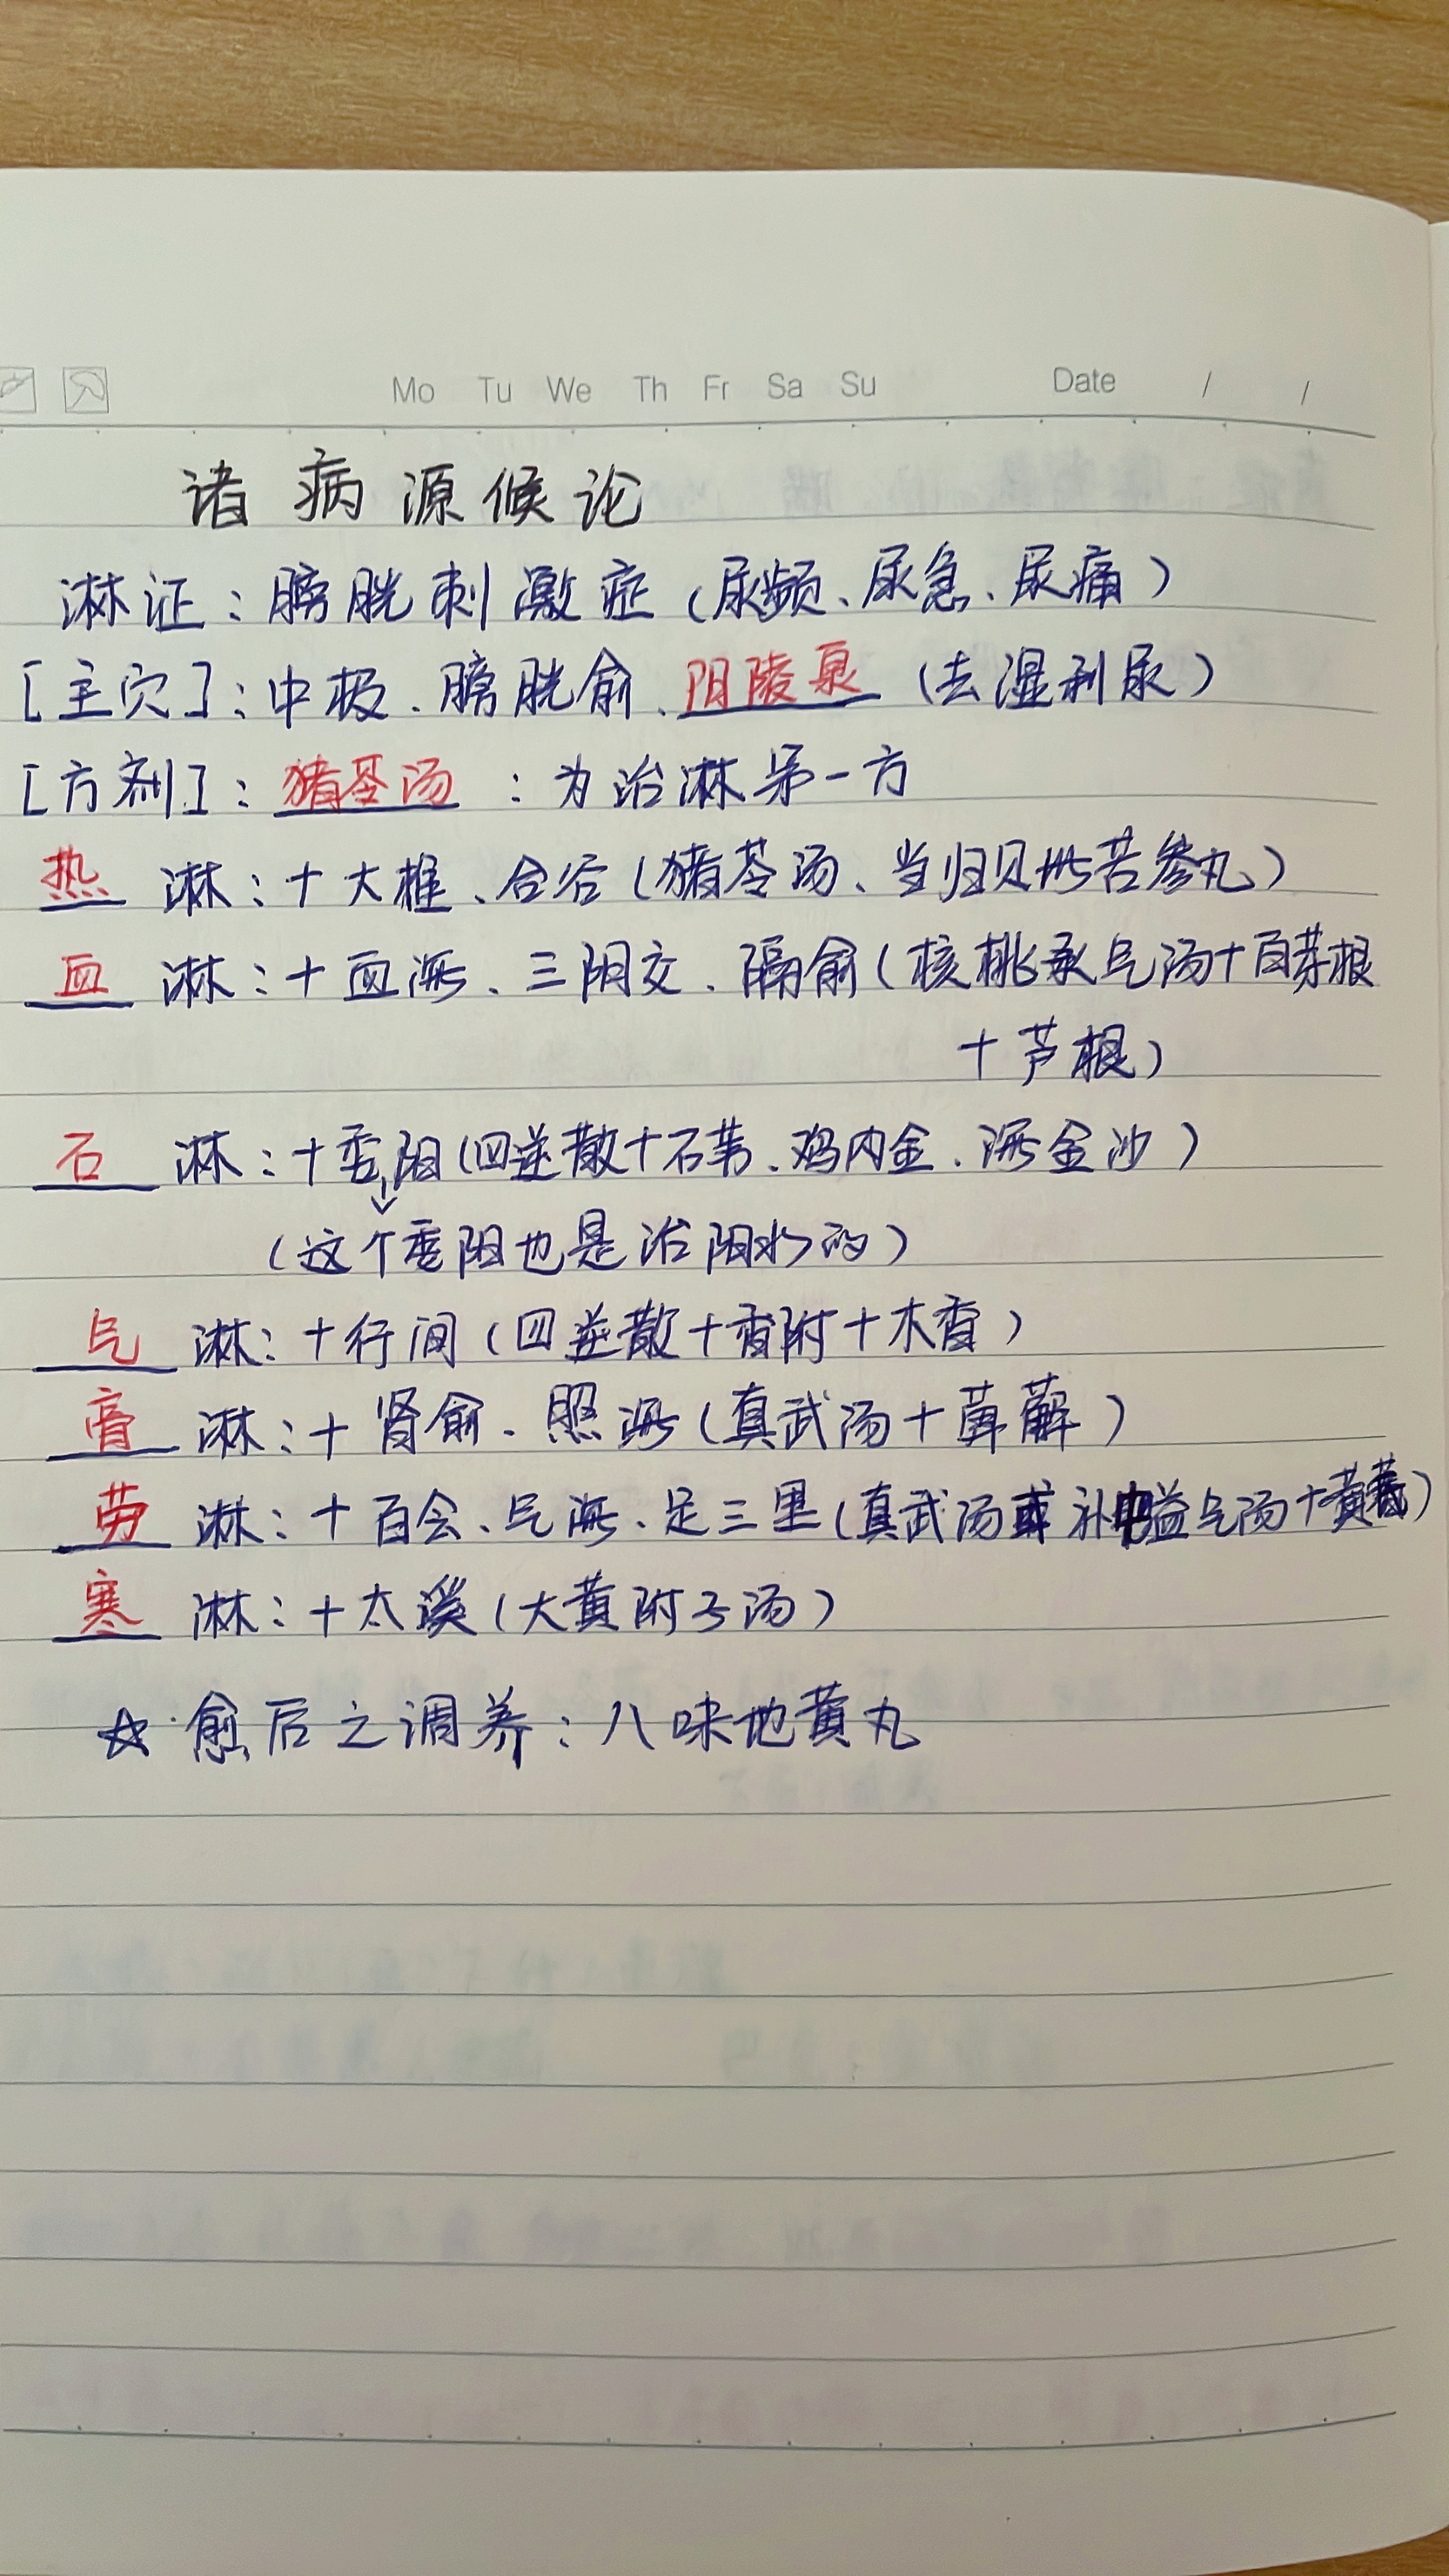 Mo Tu We Th Fr Sa Su Date / /
诸病源候论
淋证：膀胱刺激症（尿频、尿急、尿痛）
[主穴]：中极、膀胱俞、阴陵泉（去湿利尿）
[方剂]：猪苓汤：为治淋第一方
热淋：+大椎、合谷（猪苓汤、当归贝母苦参丸）
血淋：+血海、三阴交、隔俞（核桃承气汤+白茅根
+芦根）
石淋：+委阳（四逆散+石苇、鸡内金、海金沙）
（这个委阳也是治阳水的）
气淋：+行间（四逆散+香附+木香）
膏淋：+肾俞、照海（真武汤+萆薢）
劳淋：+百会、气海、足三里（真武汤或补中益气汤+黄芪）
寒淋：+太溪（大黄附子汤）
☆愈后之调养：八味地黄丸